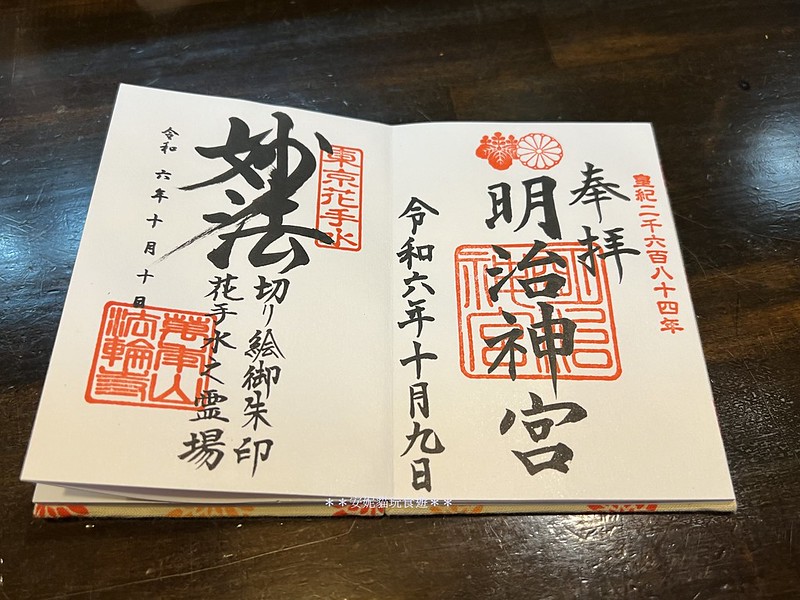 皇紀二千六百八十四年
奉拝
明治神宮
明治神宮
令和六年十月九日
東京花手水
妙法
切り絵御朱印
花手水之霊場
令和六年十月十日
萬年山
法輪寺
＊＊安妮貓玩食遊＊＊